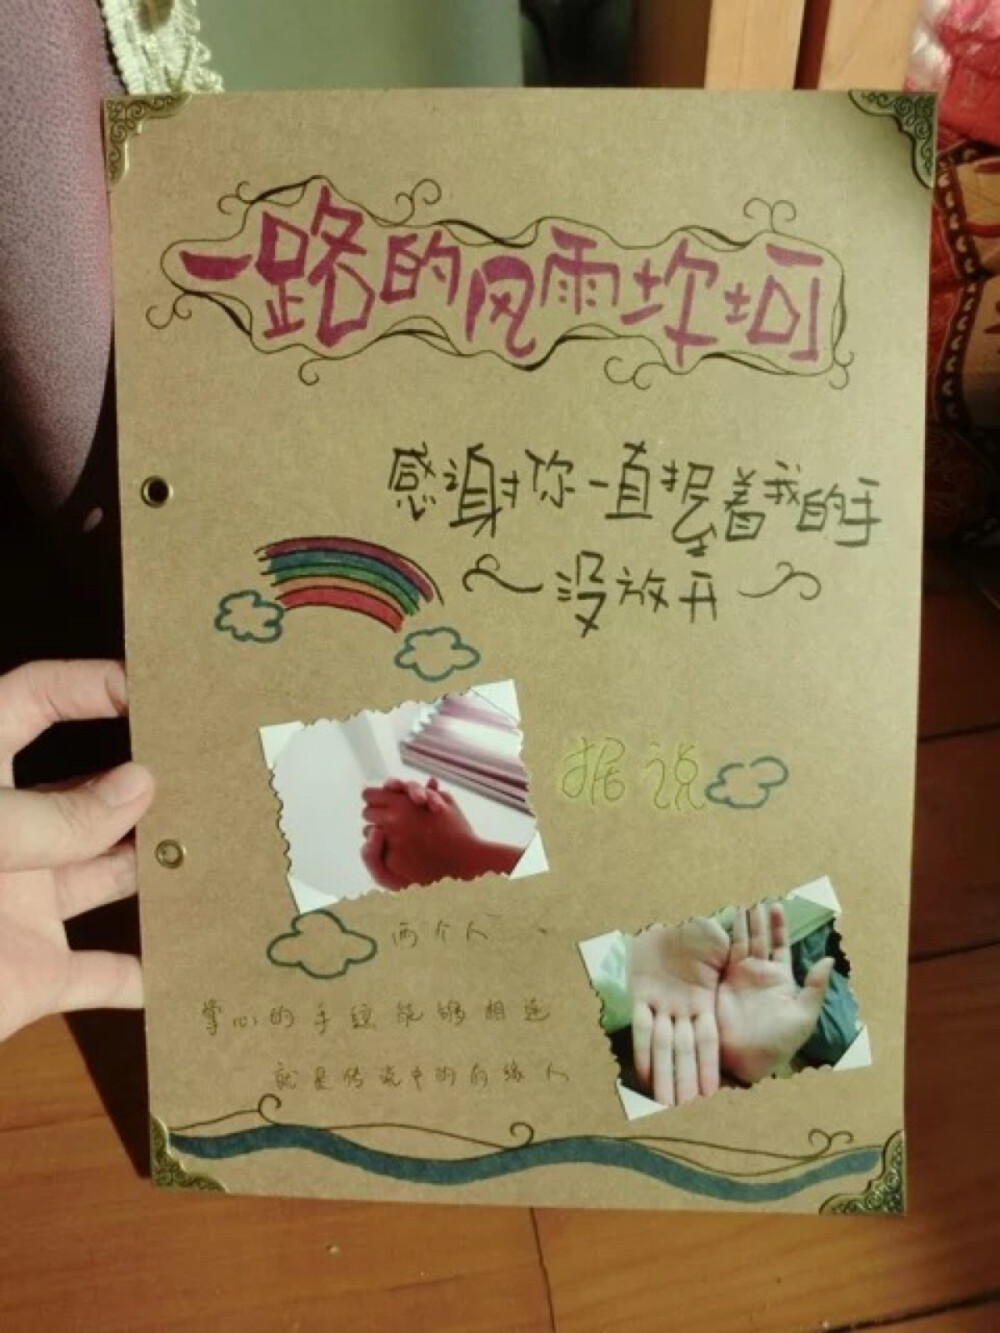 一路的风雨坎坷
感谢你一直握着我的手
没放开
据说
两个人
掌心的手纹能够相连
就是传说中的有缘人